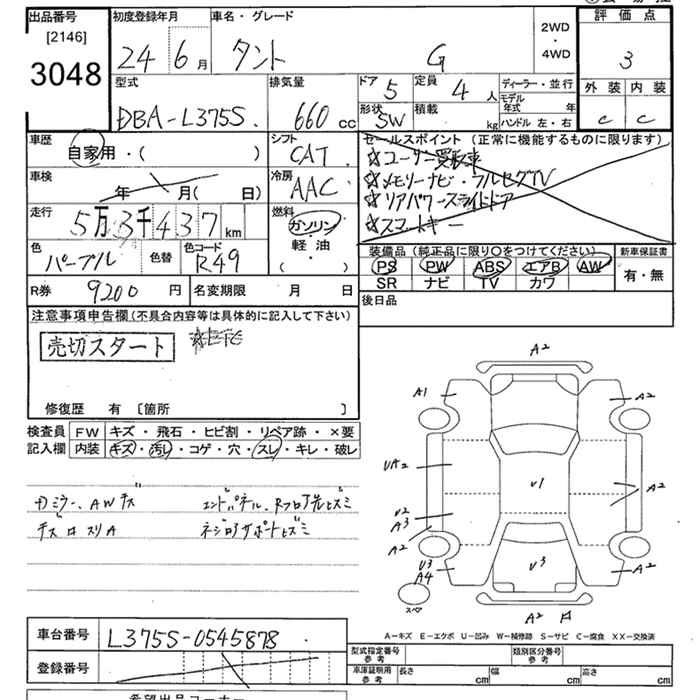 出品番号
[2146]
3048
初度登録年月
24 6月
車名・グレード
タント G
2WD
・
4WD
評価点
3
外装 内装
C C
型式
DBA-L375S
排気量
660 cc
ドア 5
定員 4 人
形状 SW
積載 kg
ディーラー・並行
モデル年式 年
ハンドル 左・右
車歴
自家用・( )
シフト
CAT
車検
年 月( 日)
冷房
AAC
走行
5万3千437 km
燃料
ガソリン
・
軽油
( )
色
パープル
色替
色コード
R49
セールスポイント(正常に機能するものに限ります)
☆ユーザー買取車
☆メモリーナビ・フルセグTV
☆リアパワースライドドア
☆スマートキー
装備品(純正品に限り○をつけてください)
PS PW ABS エアB AW
SR ナビ TV カワ
新車保証書
有・無
R券 9200 円
名変期限 月 日
後日品
注意事項申告欄(不具合内容等は具体的に記入して下さい)
売切スタート
修復歴 有 〔箇所 〕
検査員 FW キズ・飛石・ヒビ割・リペア跡・×要
記入欄 内装 キズ・汚レ・コゲ・穴・スレ・キレ・破レ
A2
A1 A2
UA2 U1 A2
U2
A3
A2 U3 A2
U3
A4
スペア
A2
A－キズ E－エクボ U－凹み W－補修跡 S－サビ C－腐食 XX－交換済
車台番号 L375S-0545878
登録番号
型式指定番号
参考
類別区分番号
参考
車庫証明用
参考
長さ cm 幅 cm 高さ cm
希望出品コーナー